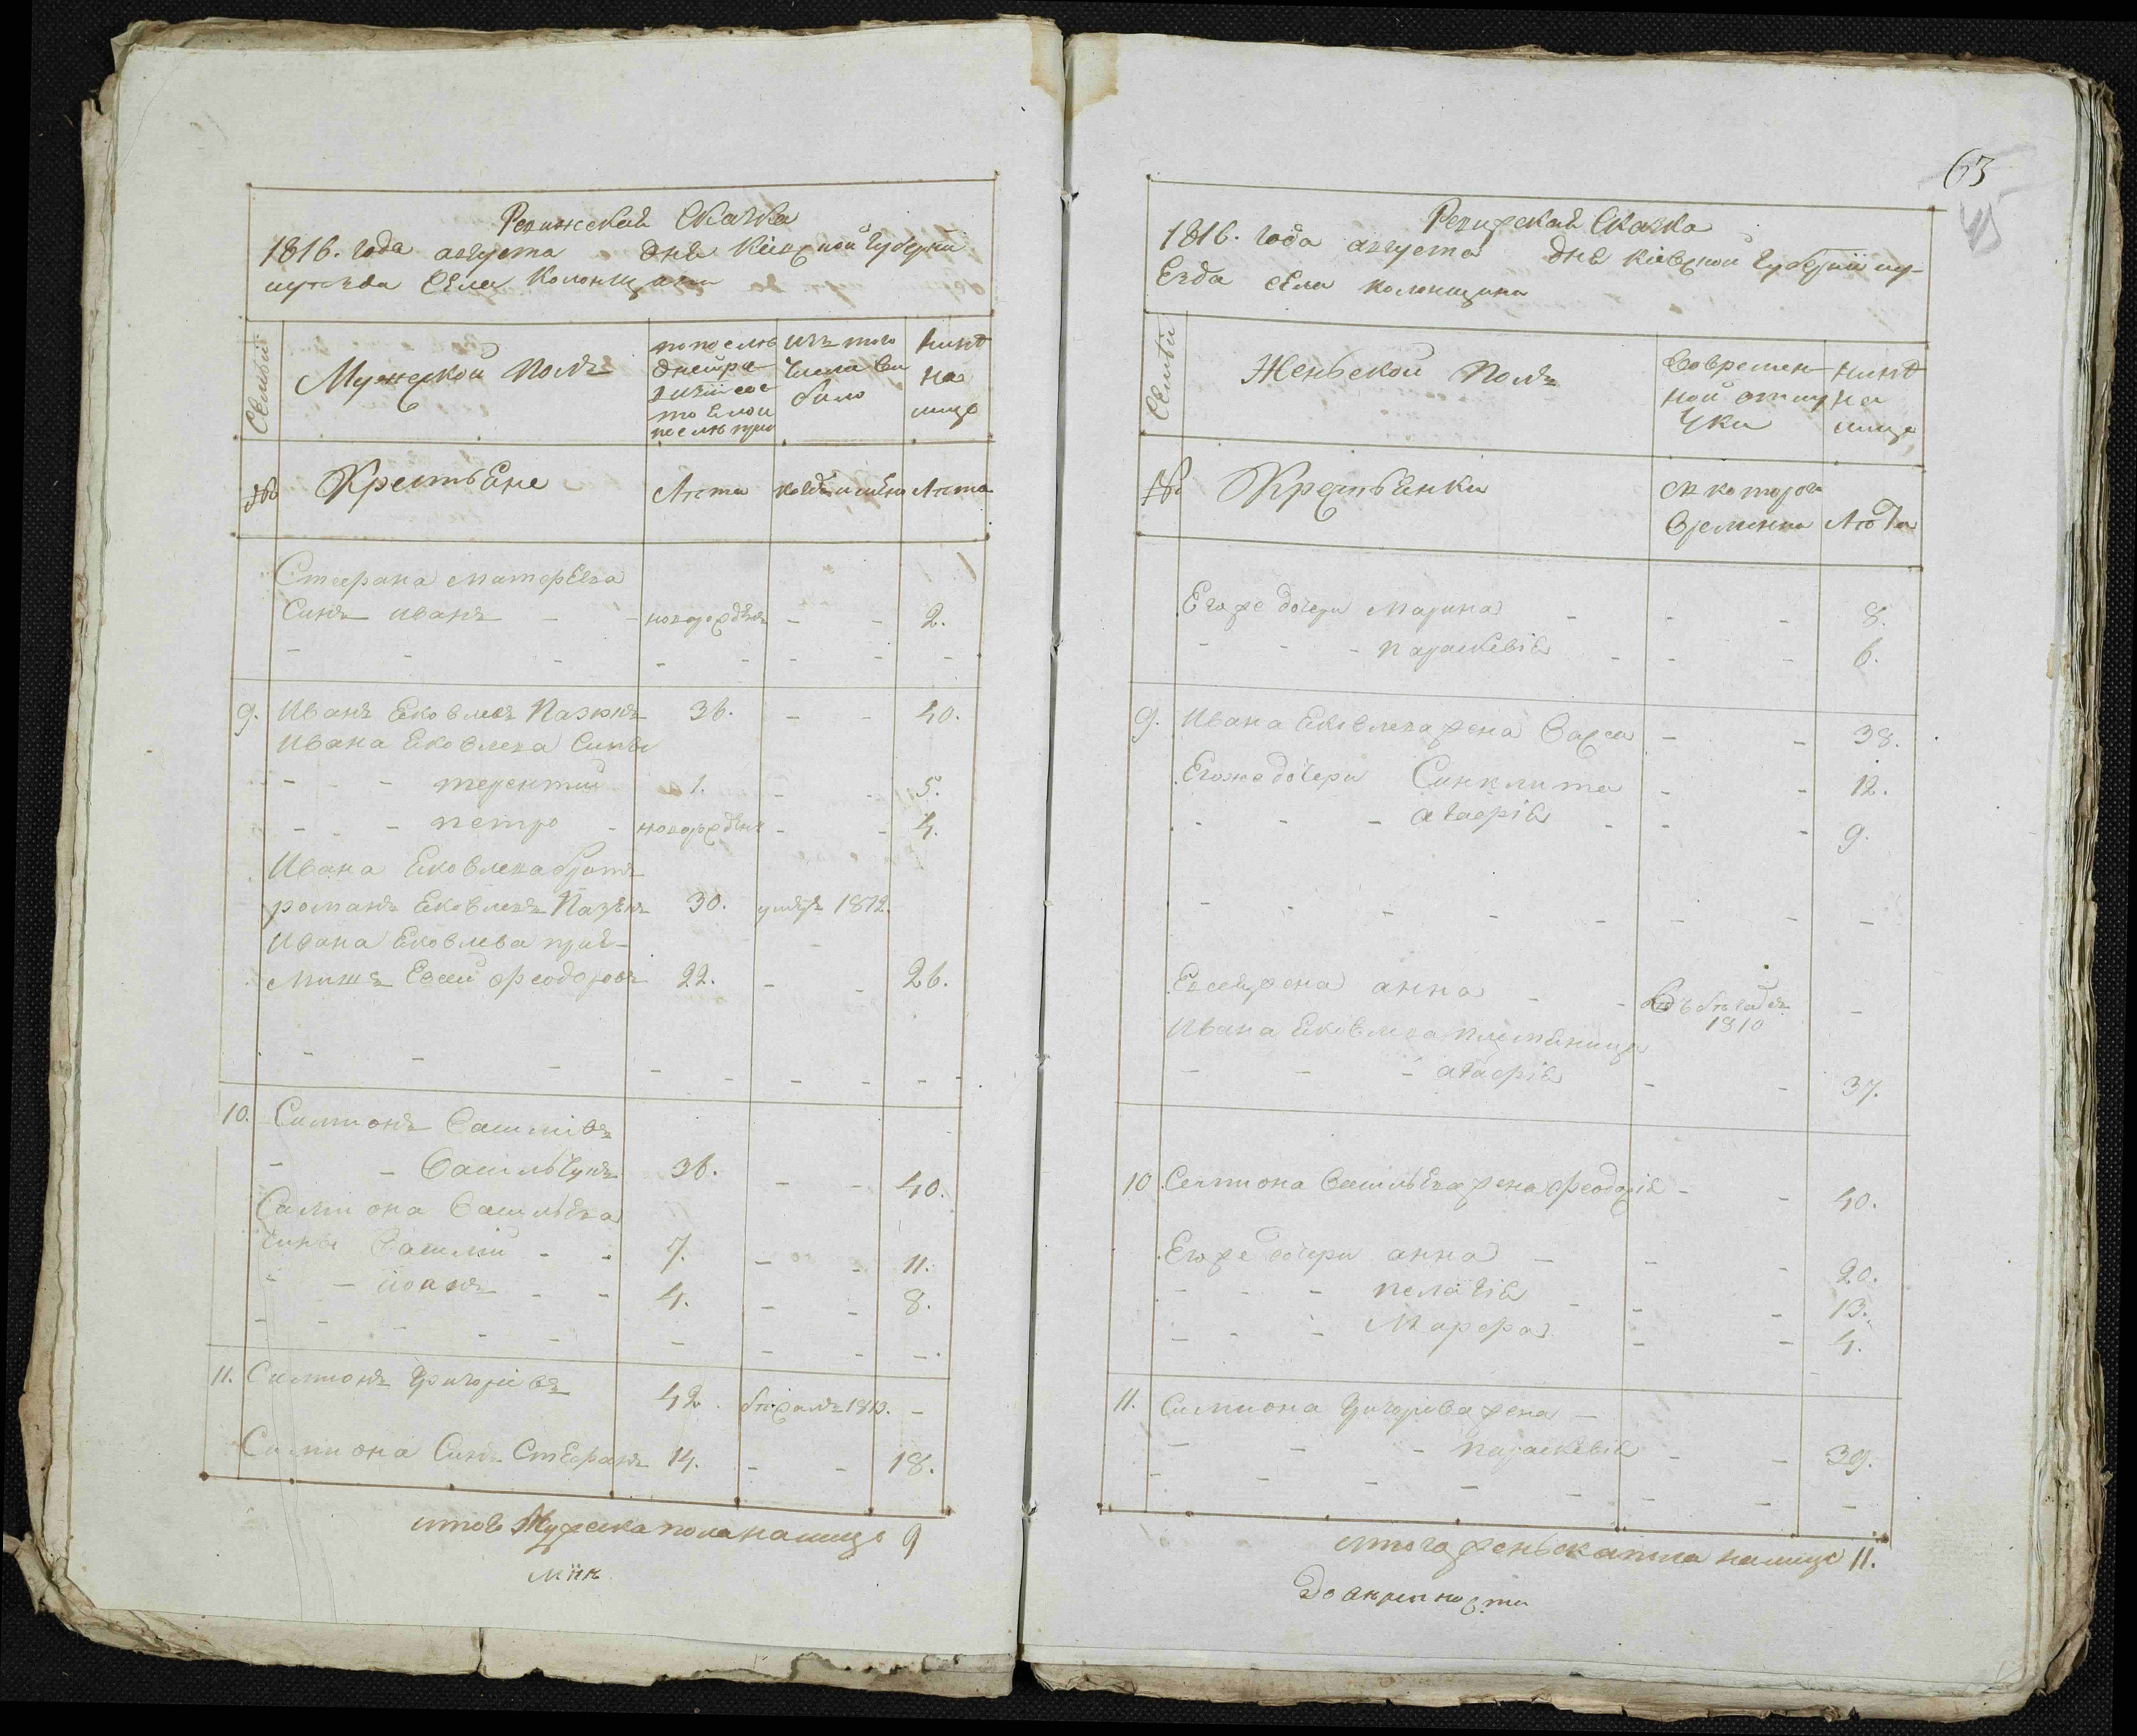 Ревижская Сказка
1816. года августа дня Кіевской Губернии
уезда Села Колонщини
Семьи
Мужеской Полъ
по последней ревизіи состояло и после прибыло
изъ того числа выбыло
ныне на лицо
№
Крестьяне
Лета
когда именно
Лета
Стефана Матфеева
Синъ Иванъ - - новорожденъ - - 2.
9. Иванъ Яковлевъ 36. - - 40.
Ивана Яковлева Сини
- - - терентий 1. - - 5.
- - - петро - новорожденъ - - 4.
Ивана Яковлева братъ
романъ Яковлевъ 30. умре 1812.
Ивана Яковлева прий-
мишъ Евсей феодоровъ 22. - - 26.
10. Симионъ Василивъ
- - Васильчукъ 36. - - 40.
Симиона Васильева
Сини Василий - - 7. - - 11.
- - иоанъ - - 4. - - 8.
11. Симионъ Григоривъ 42. бежалъ 1813. -
Симиона Синъ Стефанъ 14. - - 18.
итого Мужска пола налицо 9
63
45
Ревижская Сказка
1816. года августа дня Кіевской Губерніи уезда села Колонщини
Семьи
Женьской Полъ
Во временной отлучки
ныне на лицо
№
Крестьянки
съ которого времени
Лета
Егоже дочери Марина - - - 8.
- - - параскевія - - - 6.
9. Ивана Яковлева жена Васса - - 38.
Егоже дочери Синклита - - 12.
- - - агафія - - - 9.
Евсея жена анна - - въ бегахъ 1810 -
Ивана Яковлева племяница
- - - агафія - - 37.
10. Семиона Васильева жена феодосія - - 40.
Егоже дочери анна - - - 20.
- - - пелагія - - - 13.
- - - Марфа - - 4.
11. Симиона Григорива жена -
- - - параскевія - - 39.
итого женьска пола налицо 11.